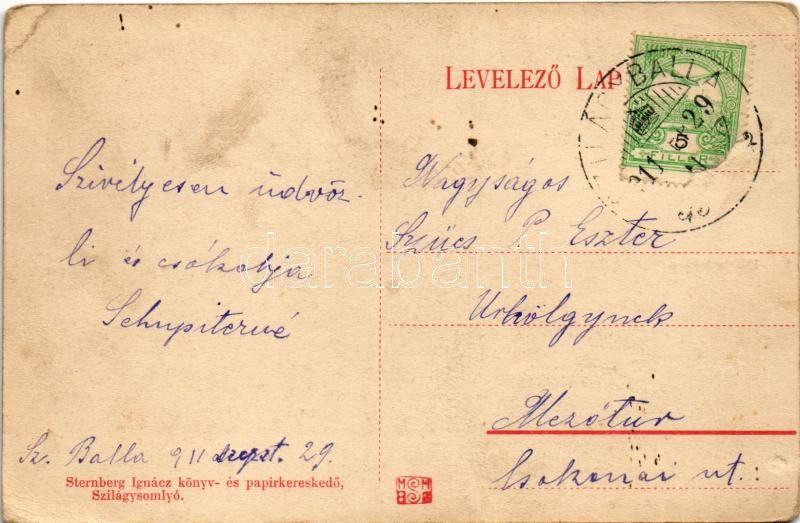 LEVELEZŐ LAP
MAGYAR KIR. POSTA
5
FILLÉR
BALLA
911
29
Szivélyesen üdvöz-
li és csókolja
Schupiterné
Nagyságos
Szücs P. Eszter
Urhölgynek
Mezőtur
Csokonai ut.:
Sz. Balla 911 szept. 29.
Sternberg Ignácz könyv- és papirkereskedő,
Szilágysomlyó.
darabanth